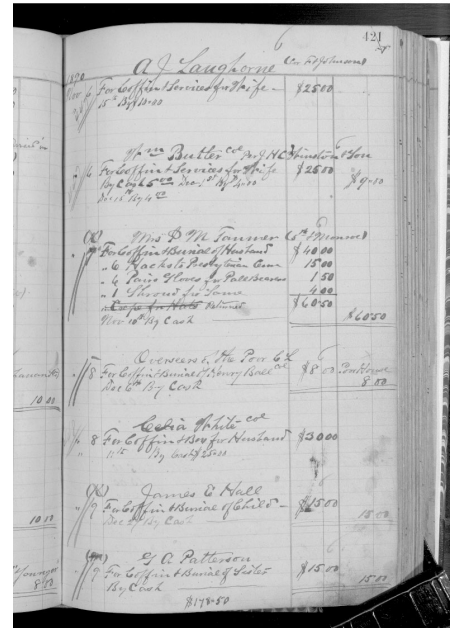 421
A J Langhorne Cor 5th & Johnson
1890
Nov 6 For Coffin & Services for Wife - $25.00
15th By 10.00
Wm Butler col Per J H C Winston & Son
6 For Coffin & Services for Wife $25.00
By Cash 5.00 Dec 1st By $4.00 $9.10
Mrs P M Tanner 6th & Monroe
For Coffin & Burial of Husband $40.00
" 6 Hacks to Presbyterian Cem 15.00
" 6 Pairs Gloves for Pall Bearers 1.50
" 1 Shroud for Same 4.00
" Crape for Hats Returned $60.50
Nov 10th By Cash $60.50
Overseers of the Poor C L
8 For Coffin & Burial of Henry Ball col $8.00 Poor House
Dec 6th By Cash 8.00
Celia White col
" 8 For Coffin & Box for Husband $30.00
11th By Cash $25.00
James E Hall
" 9 For Coffin & Burial of Child - $15.00
Dec By Cash 15.00
G A Patterson
" 9 For Coffin & Burial of Sister $15.00
By Cash 15.00
$178.50
10 00
10 00
8 00